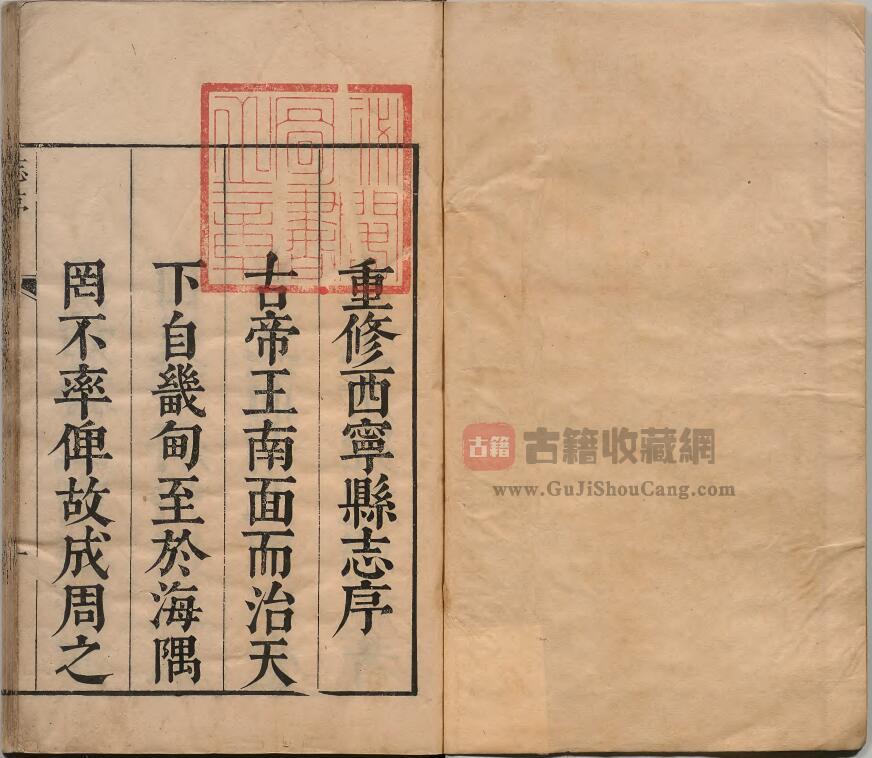 重修西寧縣志序
古帝王南面而治天
下自畿甸至於海隅
罔不率俾故成周之
志序
一
古籍
古籍收藏網
www.GuJiShouCang.com